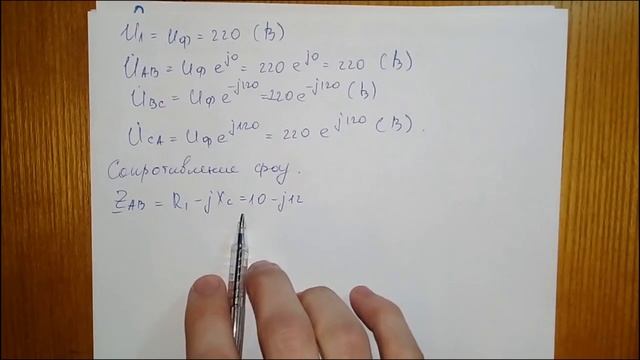 Uл = Uф = 220 (В)
U̇AB = Uф e^j0 = 220 e^j0 = 220 (В)
U̇BC = Uф e^-j120 = 220 e^-j120 (В)
U̇CA = Uф e^j120 = 220 e^j120 (В).
Сопротивление фаз.
Z̲AB = R1 - jXc = 10 - j12